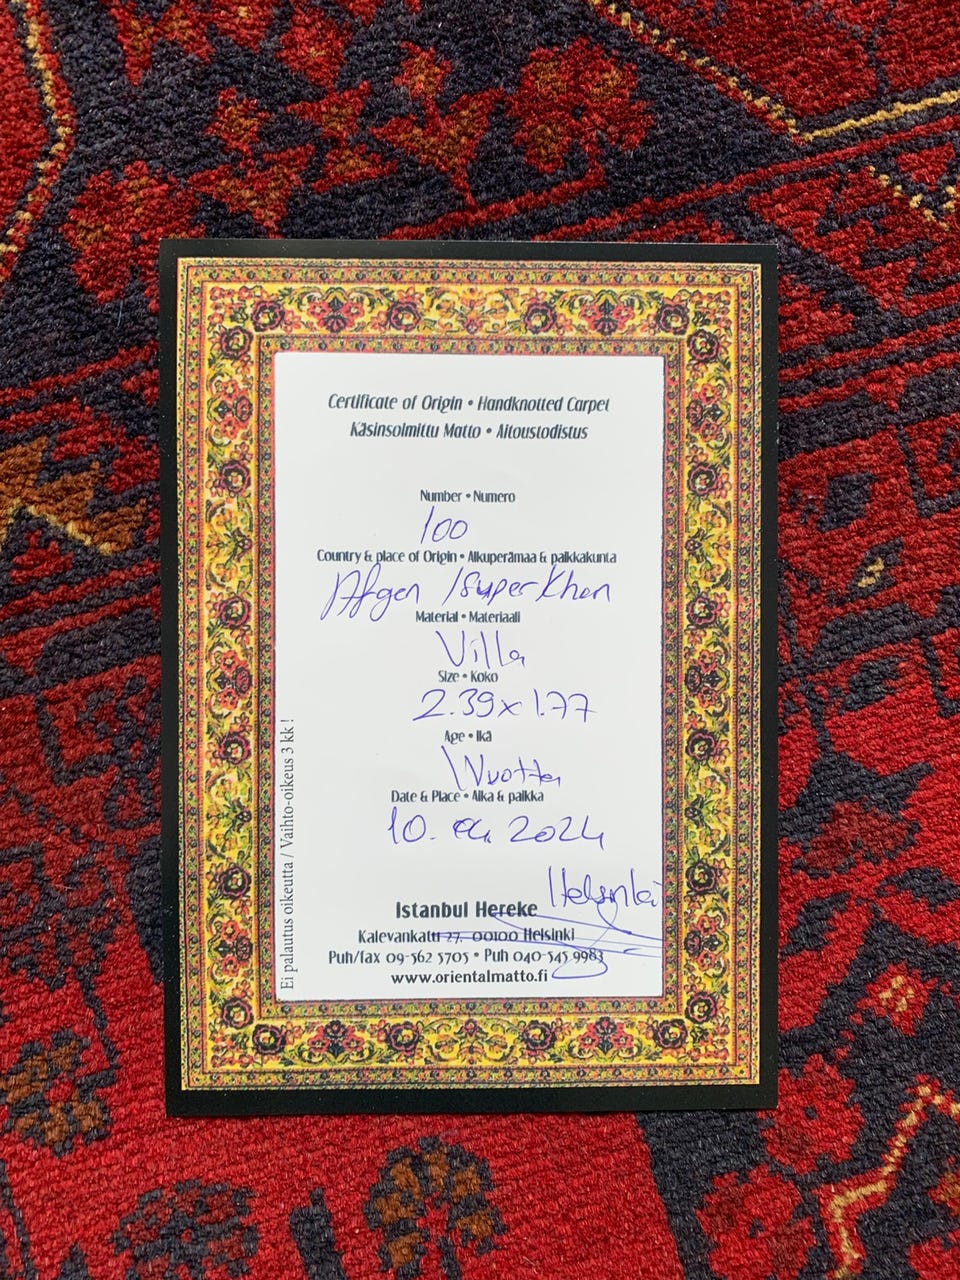 Certificate of Origin • Handknotted Carpet
Käsinsolmittu Matto • Aitoustodistus
Number • Numero
100
Country & place of Origin • Alkuperämaa & paikkakunta
Afgan / Super Khan
Material • Materiaali
Villa
Size • Koko
2.39 x 1.77
Age • Ikä
Date & Place • Aika & paikka
10. 04. 2024
Helsinki
Istanbul Hereke
Kalevankatu 27, 00100 Helsinki
Puh/fax 09-562 5705 • Puh 040-545 9983
www.orientalmatto.fi
Ei palautus oikeutta / Vaihto-oikeus 3 kk !